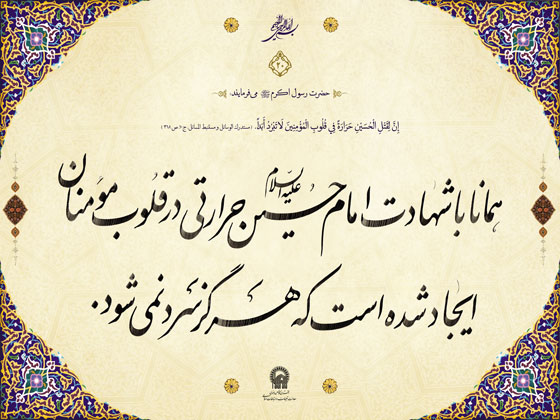 بسم الله الرحمن الرحیم
۲۰
حضرت رسول اکرم ﷺ می‌فرمایند:
إِنَّ لِقَتْلِ الْحُسَيْنِ حَرَارَةً فِي قُلُوبِ الْمُؤْمِنِينَ لَا تَبْرُدُ أَبَداً. (مستدرک الوسائل و مستنبط المسائل، ج ۱۰ ص ۳۱۸)
همانا با شهادت امام حسین علیه السلام حرارتی در قلوب مؤمنان
ایجاد شده است که هرگز سرد نمی شود.